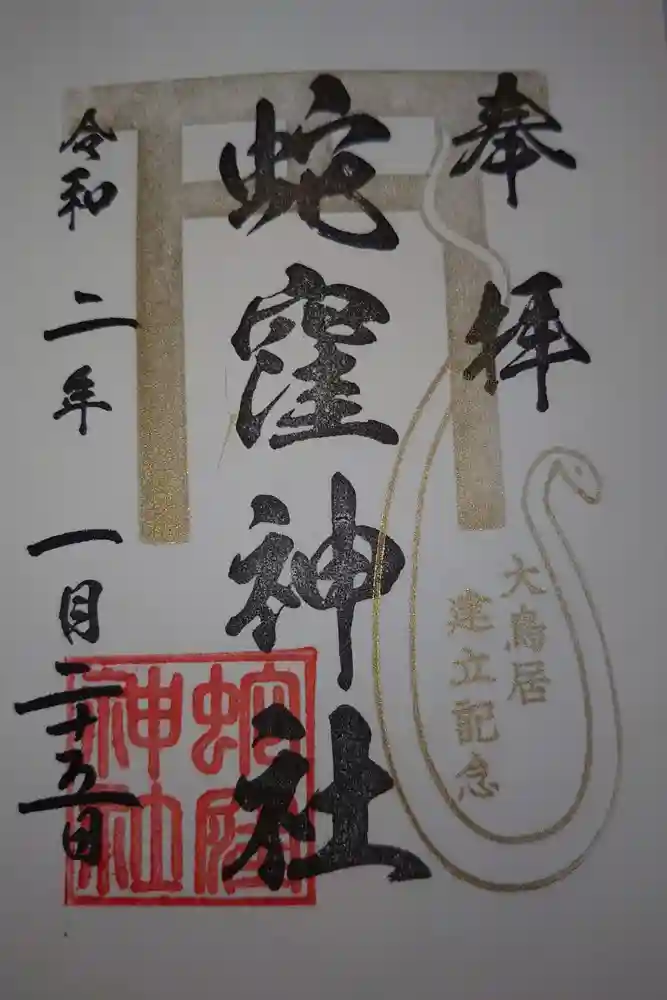 奉拝
大鳥居
建立記念
蛇窪神社
蛇窪神社
令和二年一月二十五日